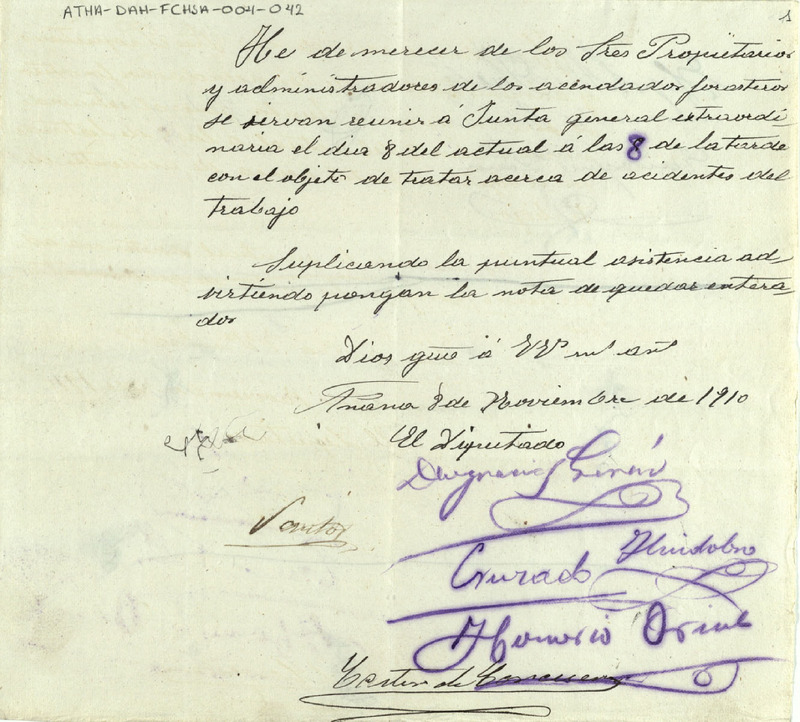 ATHA-DAH-FCHSA-004-042
1
He de merecer de los Sres Propietarios
y administradores de los acendador forasteros
se sirvan reunir á Junta general extraordi
naria el dia 8 del actual á las 8 de la tarde
con el objeto de tratar acerca de acidentes del
trabajo
Suplicando la puntual asistencia ad
virtiendo pongan la nota de quedar entera
dos
Dios gue á VVs ms ans
Añana 8 de Noviembre de 1910
El Diputado
Cruzado
Honorio